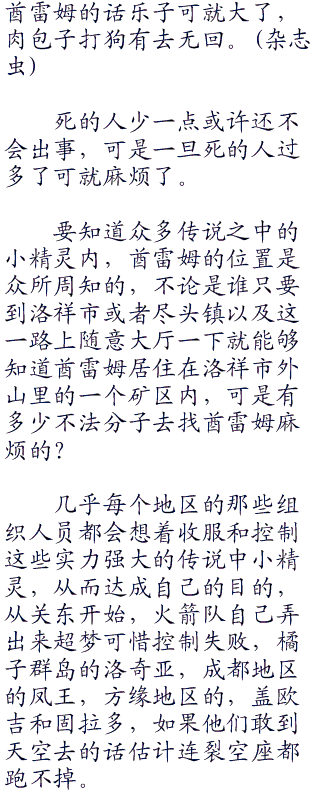 酋雷姆的话乐子可就大了，
肉包子打狗有去无回。(杂志
虫)
死的人少一点或许还不
会出事，可是一旦死的人过
多了可就麻烦了。
要知道众多传说之中的
小精灵内，酋雷姆的位置是
众所周知的，不论是谁只要
到洛祥市或者尽头镇以及这
一路上随意大厅一下就能够
知道酋雷姆居住在洛祥市外
山里的一个矿区内，可是有
多少不法分子去找酋雷姆麻
烦的？
几乎每个地区的那些组
织人员都会想着收服和控制
这些实力强大的传说中小精
灵，从而达成自己的目的，
从关东开始，火箭队自己弄
出来超梦可惜控制失败，橘
子群岛的洛奇亚，成都地区
的凤王，方缘地区的，盖欧
吉和固拉多，如果他们敢到
天空去的话估计连裂空座都
跑不掉。